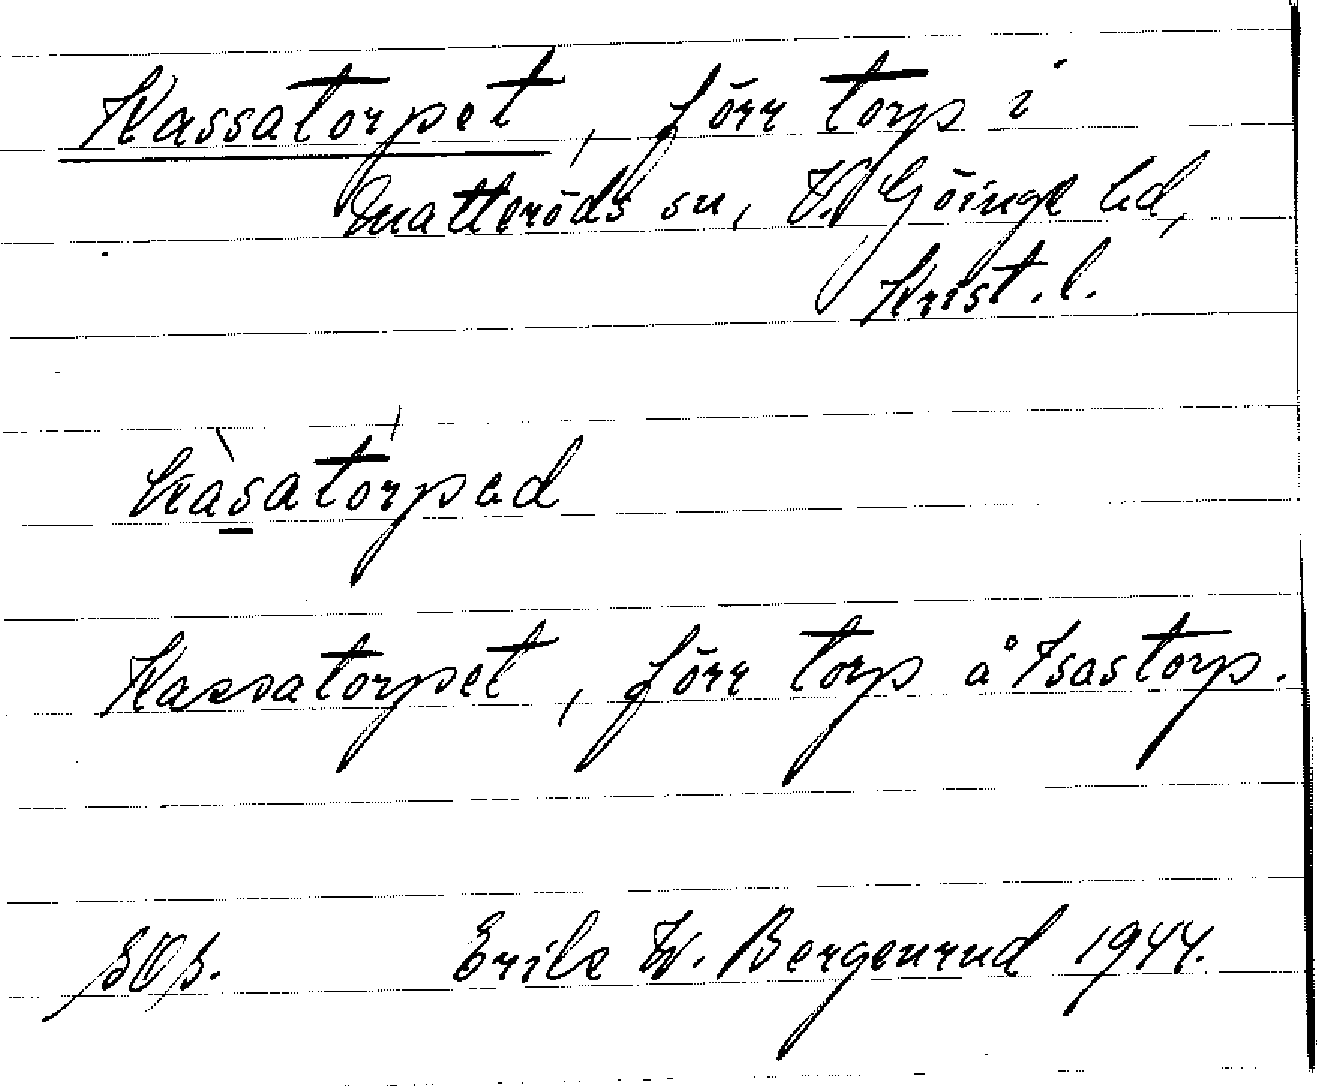 Kassatorpet, förr torp i
Matteröds sn, V. Göinge hd,
Krist. l.
kàsatórpəd
Kassatorpet, förr torp å Isastorp.
Erik W. Bergenrud 1944.